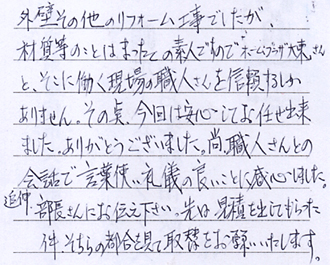 外壁その他のリフォーム工事でしたが、
材質等のことはまったくの素人ですので"ホームプラザ大東"さん
と、そこに働く現場の職人さんを信頼するしか
ありません。その点、今回は安心してお任せ出来
ました。ありがとうございました。尚、職人さんとの
会話で言葉使い、礼儀の良いことに感心しました。
追伸 部長さんにお伝え下さい。先日見積を出してもらった
件、そちらの都合を見て取替をお願いいたします。